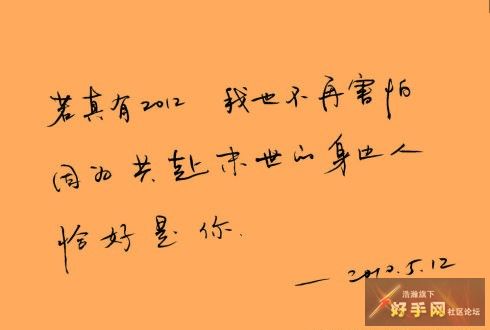 若真有2012 我也不再害怕
因为共赴末世的身边人
恰好是你.
—2010.5.12
浩瀚旗下
好手网社区论坛